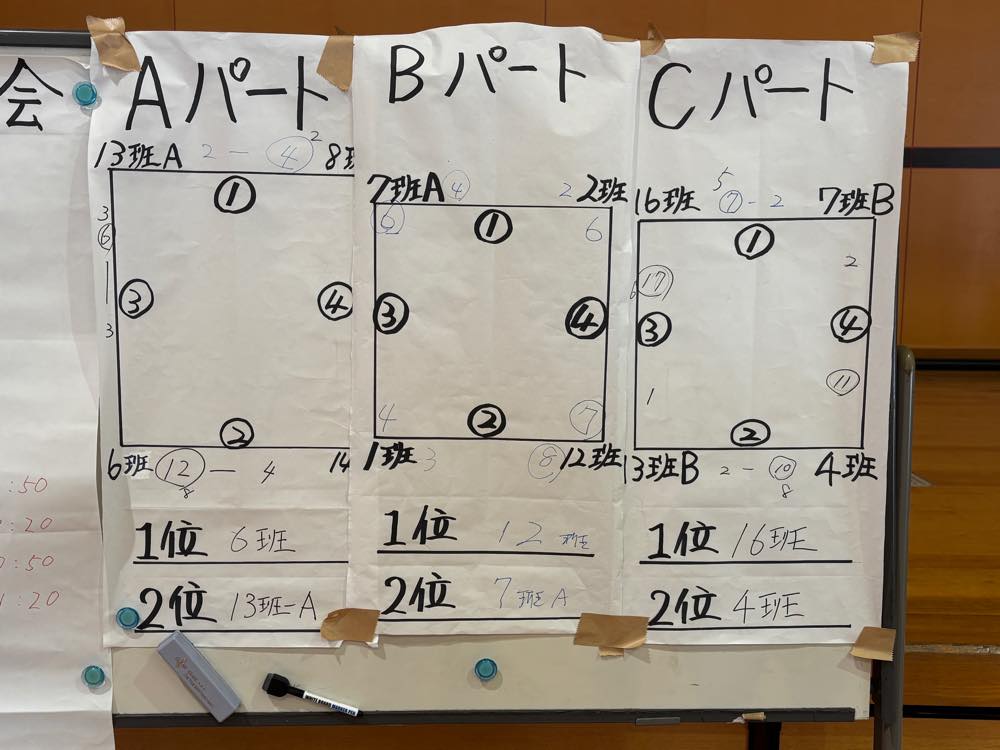 会
:50
:20
:50
:20
Aパート
13班A 2 — ④ 2 8班
①
3
⑥
1
3
③ ④
②
6班 ⑫ — 4 14
8
1位 6班
2位 13班-A
Bパート
7班A ④ 2 2班
⑥ ① 6
③ ④
4 ② ⑦
1班 3 ⑧ 12班
1位 12班
2位 7班A
Cパート
5
16班 ⑦ - 2 7班B
①
2
6 ⑰
③ ④
⑪
1
②
13班B 2 - ⑩ 4班
8
1位 16班
2位 4班
WHITE BOARD MARKER PEN